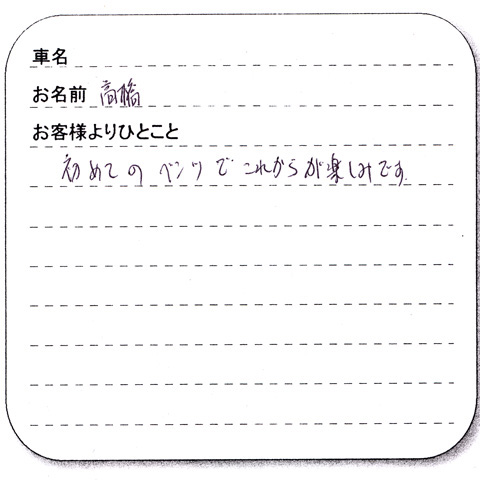 車名
お名前 高橋
お客様よりひとこと
初めてのベンツでこれからが楽しみです